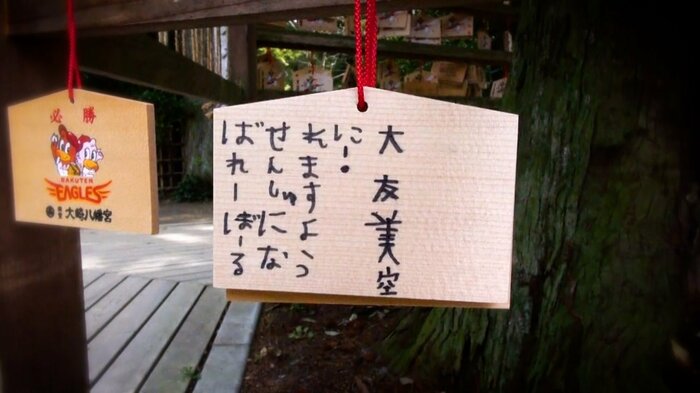 必勝
RAKUTEN
EAGLES
大崎八幡宮
ばれーぼーる
せんしゅにな
れますよう
に。
大友美空